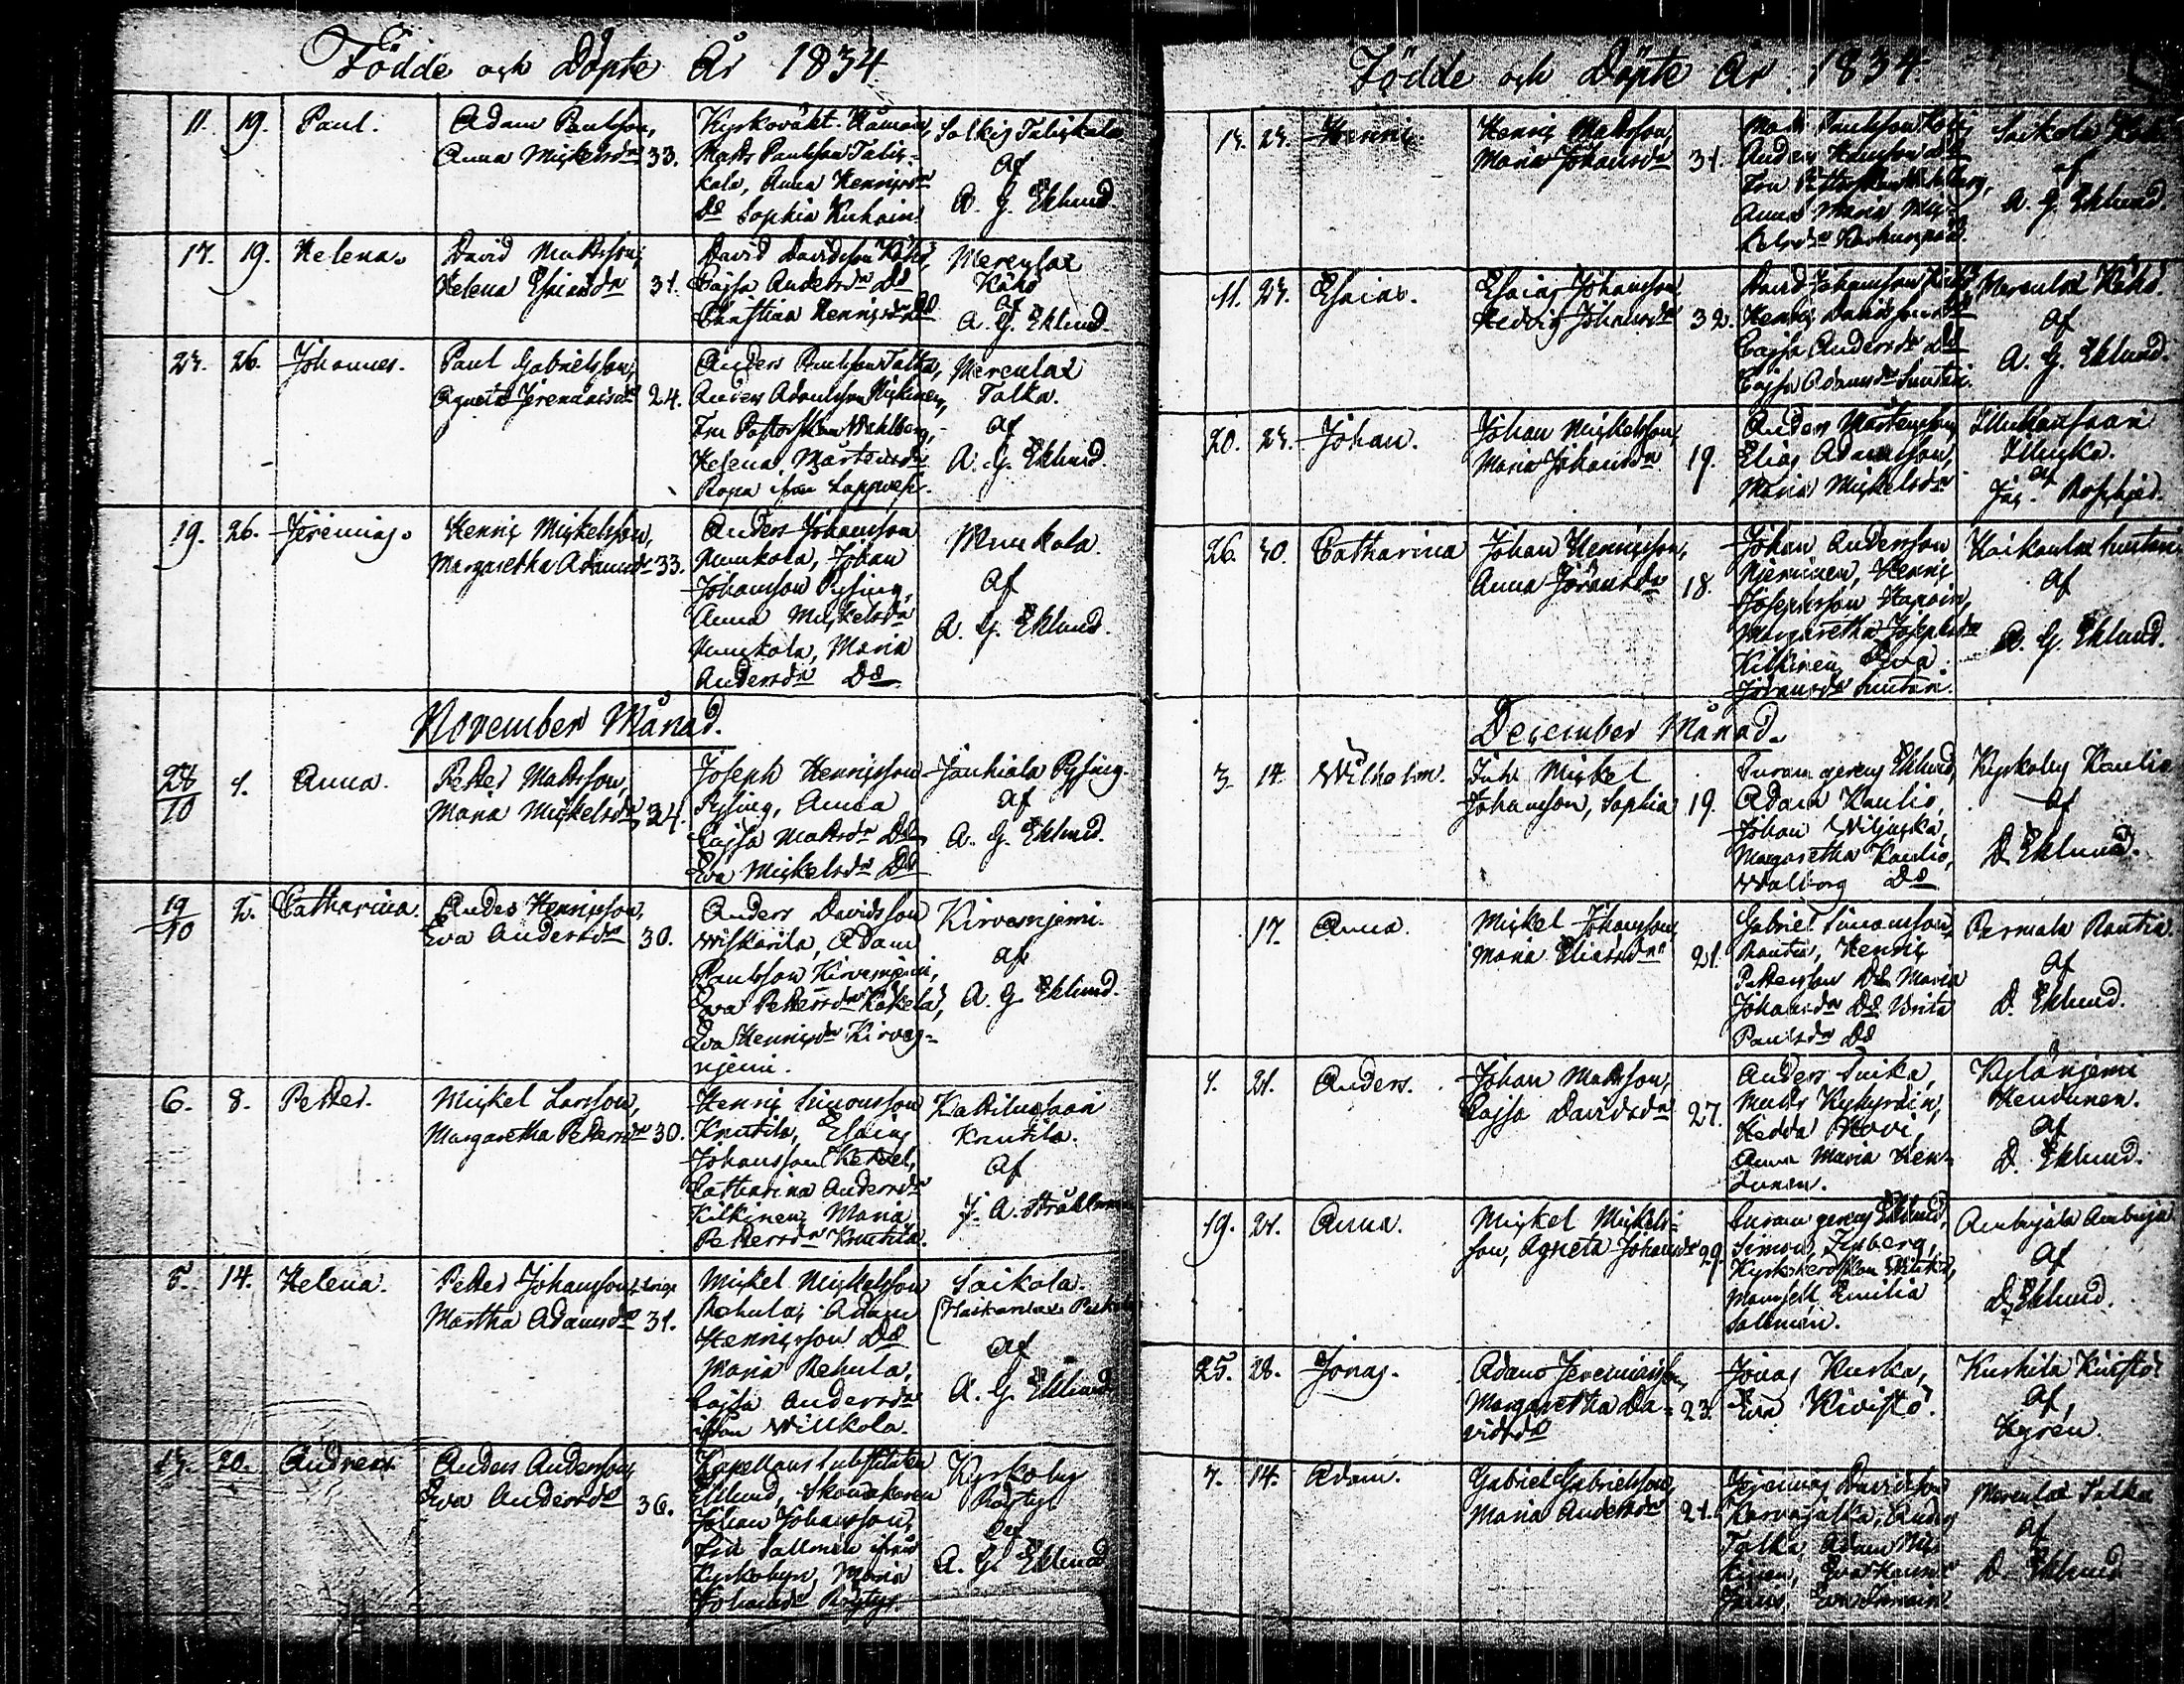 Födde och Döpte År 1834
11. 19. Paul.
Adam Paulsson,
Anna Mickelsdr 33.
Kyrkovakt
Matts Paulsson Talik-
kala, Anna Henricsdr
Do Sophia Kuhain
Salkis Talikkala
af
A. G. Eklund.
17. 19. Helena.
David Mattsson,
Helena Esaiædr 31.
David Davidsson Kähö,
Cajsa Andersdr Do
Christina Henricsdr Do
Merculax
Kähö
af
A. G. Eklund.
23. 26. Johannes.
Paul Gabrielsson,
Agneta Jeremiaedr 24.
Anders Paulsson Talka,
Anders Adamsson
Fru Pastorskan Wahlberg,
Helena Mårtensdr
Ropa ifrån Lappvesi.
Merculax
Talka.
af
A. G. Eklund.
19. 26. Jeremias.
Henric Mickelsson,
Margaretha Adamsdr 33.
Anders Johansson
Munkola, Johan
Johansson Pysing,
Anna Mickelsdr
Munkola, Maria
Andersdr Do
Munkola.
af
A. G. Eklund.
November Månad.
28/10 1. Anna.
Petter Mattsson,
Maria Mickelsdr 24.
Joseph Henricsson
Pysing, Anna
Cajsa Mattsdr Do
Eva Mickelsdr Do
Jankiala Pysing.
af
A. G. Eklund.
19/10 2. Catharina.
Anders Henricsson,
Eva Andersdr 30.
Anders Davidsson
Wiskarila, Adam
Paulsson Kirvesnjemi,
Eva Pettersdr Kokela,
Eva Henricsdr Kirves-
njemi.
Kirvesnjemi.
af
A. G. Eklund.
6. 8. Petter.
Mickel Larsson,
Margaretha Pettersdr 30.
Henric Simonsson
Knutila, Esaias
Johansson Kettel,
Catharina Andersdr
Kilkinen, Maria
Pettersdr Knutila.
Kattilusaari
Knutila.
af
J. A. Stråhlman
5. 14. Helena.
Petter Johansson,
Martha Adamsdr 31.
Mickel Mickelsson
Rehula, Adam
Henricsson Do
Maria Rehula,
Cajsa Andersdr
ifrån Willkola.
Saikola.
(Haikanlax
af
A. G. Eklund
13. 20. Andreas
Anders Andersson,
Eva Andersdr 36.
Capellans Substituten
Eklund, Skomakaren
Johan Johansson,
Fru Sallmen ifrån
Kyrkobyn, Maria
Johansdr
Kyrkoby
af
A. G. Eklund
Födde och Döpte År 1834
13. 23. Henric
Henric Mattsson,
Maria Johansdr 31.
Matts Paulsson
Anders Hansson
Fru Pastorskan Wahlberg,
Anna Maria Mic-
kelsdr
Saikola
af
A. G. Eklund.
11. 23. Esaias.
Esaias Johansson,
Hedvig Johansdr 32.
David Johansson Kähö,
Henric Davidsson Do
Cajsa Andersdr Do
Cajsa Adamsdr Suntari.
Merculax Kähö.
af
A. G. Eklund.
20. 23. Johan.
Johan Mickelsson,
Maria Johansdr 19.
Anders Mårtensson,
Elias Adamsson,
Maria Mickelsdr
Illukansaari
Illuska.
af
26. 30. Catharina
Johan Henricsson,
Anna Göransdr 18.
Johan Andersson
Njeminen, Henric
Josephsson Hapoin,
Margaretha Josephsdr
Kilkinen, Eva
Göransdr Suntari.
Haikanlax Suntari
af
A. G. Eklund.
December Månad.
3 14. Wilhelm.
Inh. Mickel
Johansson, Sophia 19.
Eklund,
Adam Kaulio,
Johan Wiljaska,
Margaretha Kaulio,
Walborg Do
Kyrkoby Kaulio
af
D. Eklund.
17. Anna.
Mickel Johansson,
Maria Eliasdr 21.
Gabriel Simonsson
Rautia, Henric
Pettersson Do Maria
Johansdr Do Brita
Paulsdr Do
Permala Rautia.
af
D. Eklund.
4. 21. Anders.
Johan Mattsson,
Cajsa Davidsdr 27.
Anders Suika,
Matts Kykyräin,
Hedda Hovi,
Anna Maria Hen-
dunen.
Kylänjemi
Hendunen.
af
D. Eklund.
19. 21. Anna.
Mickel Mickels-
son, Agneta Johansdr 29.
Eklund,
Simon Enberg,
Mamsell Emilia
Sallmén.
Ambusjala Ambusja
af
D. Eklund.
25. 28. Jonas.
Adam Jeremiæsson,
Margaretha Da- 23.
vidsdr
Jonas Kuska,
Eva Kivistö.
Kurkila Kivistö
af
Kyrén
7. 14. Adam.
Gabriel Gabrielsson,
Maria Andersdr 21.
Jeremias Davidsson
Karvajalka, Anders
Talka, Adam
Merculax Talka
af
D. Eklund